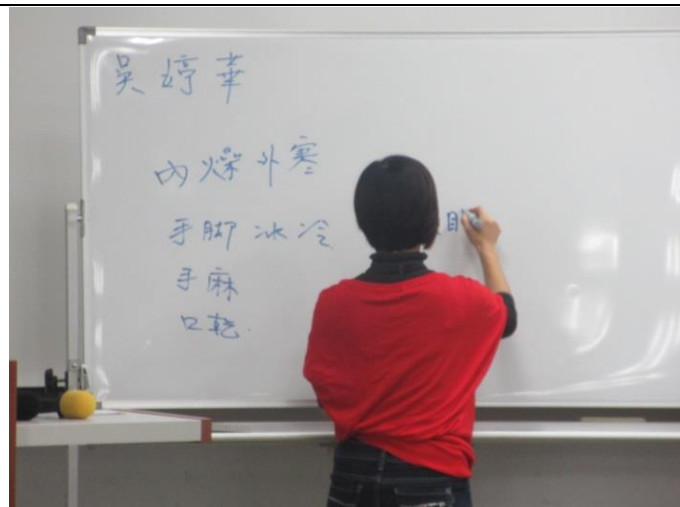 吳婷華
內燥外寒
手脚冰冷
手麻
口乾.